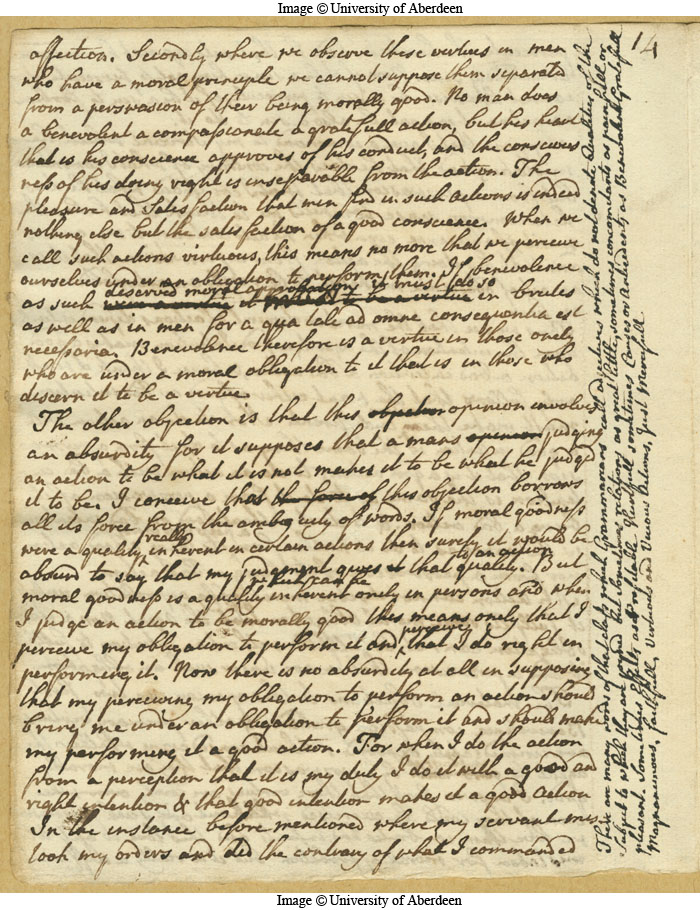 Image © University of Aberdeen
14
affection. Secondly where we observe these virtues in men
who have a moral principle we cannot suppose them separated
from a perswasion of their being morally good. No man does
a benevolent a compassionate a gratefull action, but his heart
that is his conscience approves of his conduct, and the conscious
ness of his doing right is inseparable from the action. The
pleasure and Satisfaction that men find in such actions is indeed
nothing else but the satisfaction of a good conscience. When we
call such actions virtuous, this means no more that we perceive
ourselves under an obligation to perform them. If benevolence
deserved moral approbation it must do so
as such were a virtue it to be a virtue in brutes
as well as in men for a qua tale ad omne consequentia est
necessaria. Benevolence therefore is a virtue in those onely
who are under a moral obligation to it that is in those who
discern it to be a virtue.
The other objection is that this objection opinion involves
an absurdity for it supposes that a mans opinion judging
an action to be what it is not makes it to be what he judgd
it to be. I conceive that the force of this objection borrows
all its force from the ambiguity of words. If moral goodness
really
were a quality inherent in certain actions then surely it would be
to an action
absurd to say that my judgment gives it that quality. But
which can be
moral goodness is a quality inherent onely in persons and when
I judge an action to be morally good this means onely that I
perceive
perceive my obligation to perform it and that I do right in
performing it. Now there is no absurdity at all in supposing
that my perceiving my obligation to perform an action should
bring me under an obligation to perform it and should make
my performing it a good action. For when I do the action
from a perception that it is my duty I do it with a good and
right intention & that good intention makes it a good action
In the instance before mentioned where my servant mis
took my orders and did the contrary of what I commanded
There are many words of that class which Grammarians call adjectives which do not denote Qualities of the
Subject to which they are joyned but sometimes relations as great little, sometimes concomitants as painfull or
pleasant. Sometimes Effects as Profitable Hurtfull sometimes Causes or Antecedents as Benevolent Gratefull
Magnanimous, faithfull, Virtuous and Vicious Actions, Just Mercifull
Image © University of Aberdeen